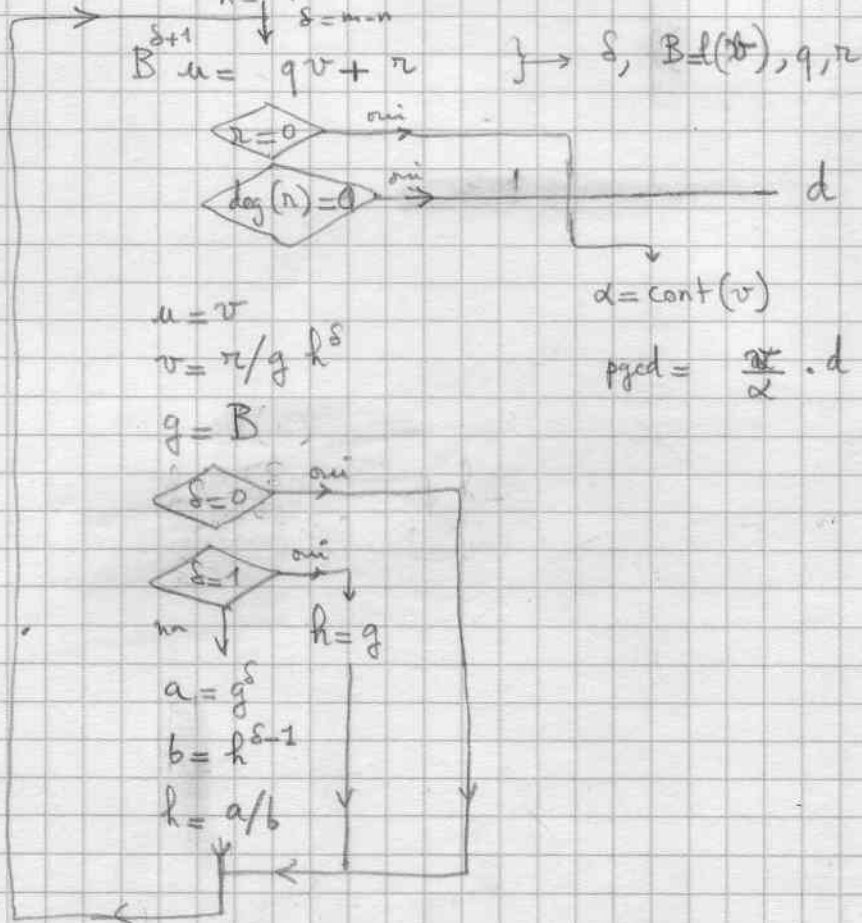 δ = m-n
B^{δ+1} u = qv + r } → δ, B=l(v), q, r
r=0 oui
deg(r)=0 oui 1 d
α = cont(v)
u = v
v = r/g h^δ
pgcd = v/α . d
g = B
δ=0 oui
δ=1 oui
non h = g
a = g^δ
b = h^{δ-1}
h = a/b